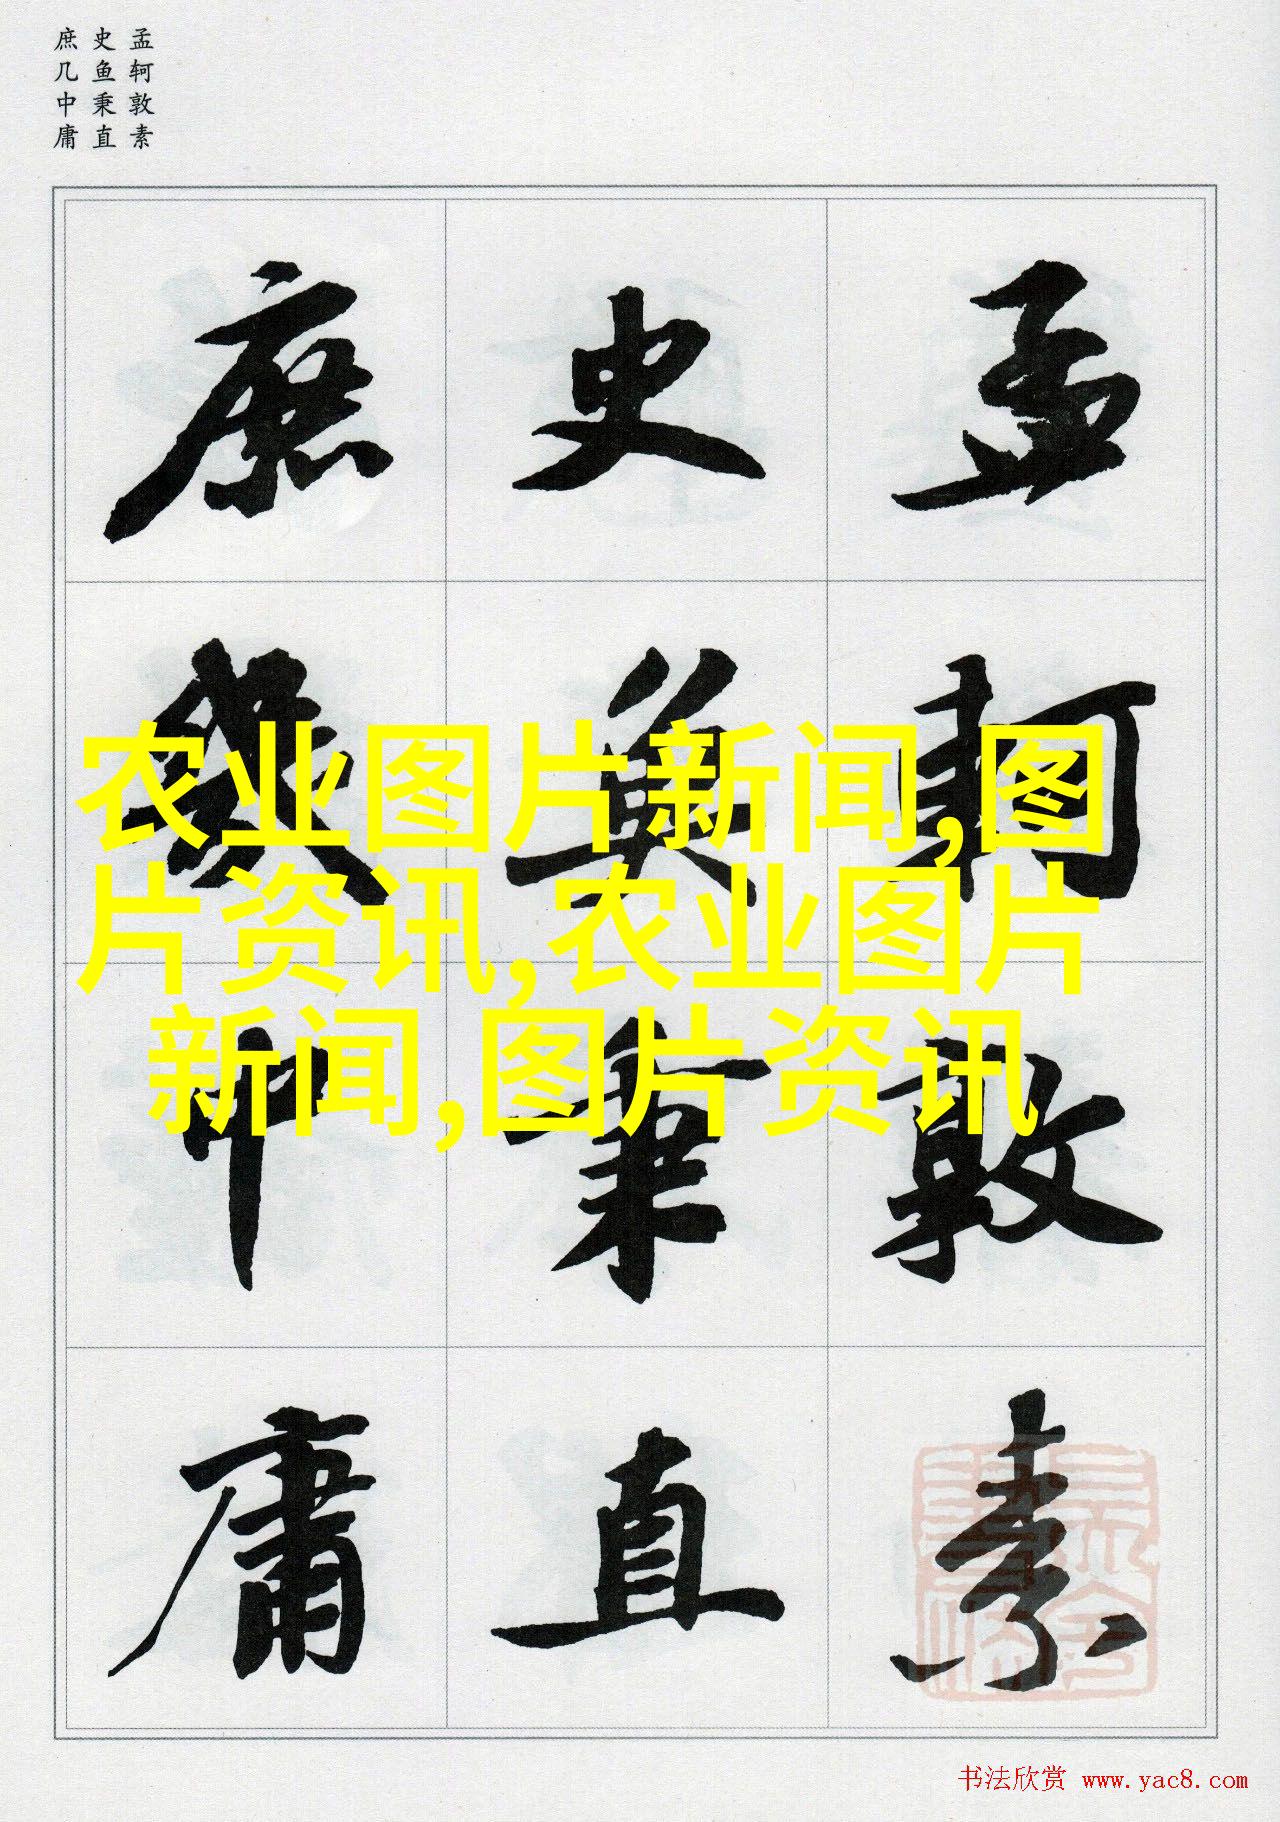 孟轲敦素
史鱼秉直
庶几中庸
孟軻敦素
史魚秉直
庶幾中庸
农业图片新闻,图
片资讯,农业图片
新闻,图片资讯
书法欣赏 www.yac8.com